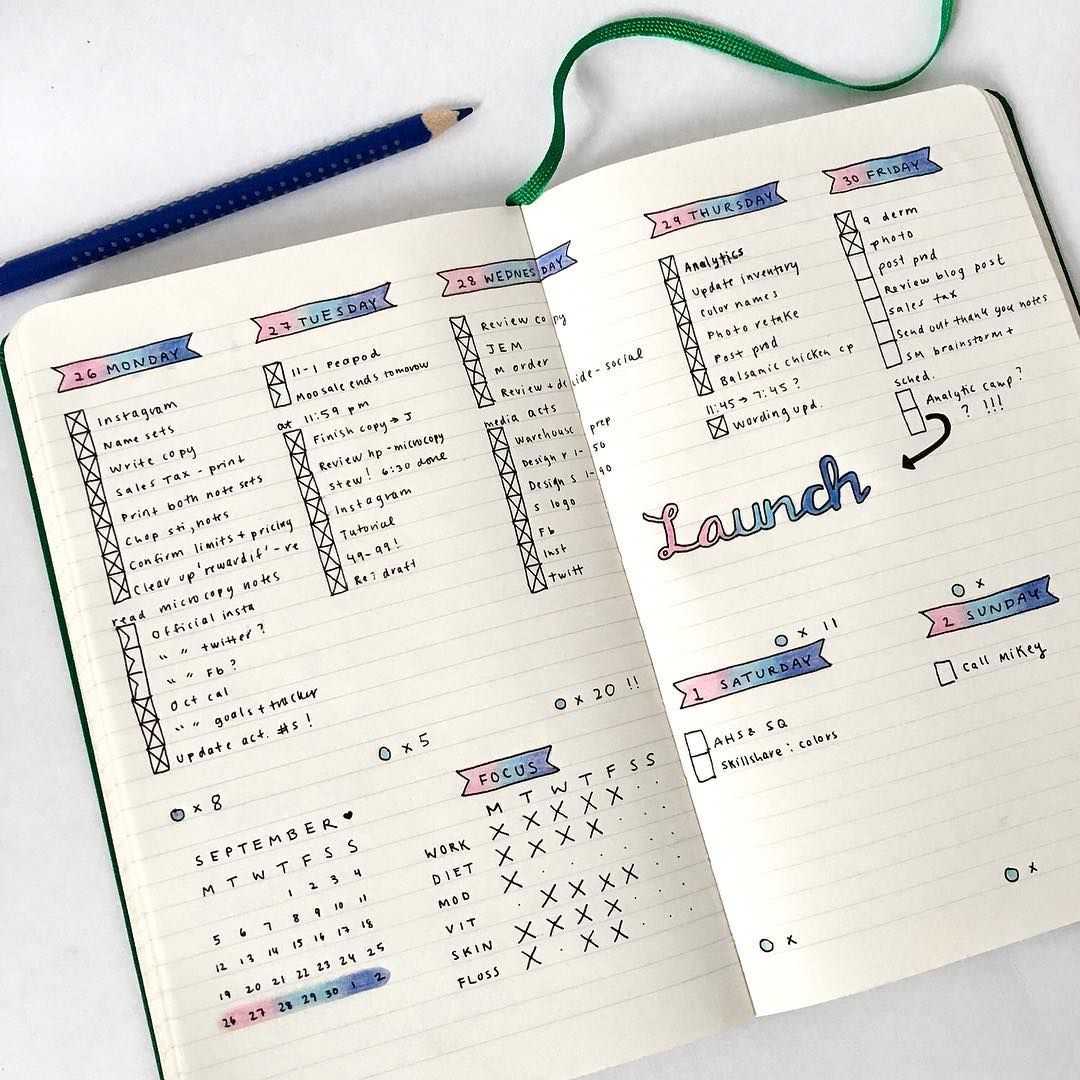 26 MONDAY
Instagram
Name sets
Write copy
Sales Tax - print
Print both note sets
Chop sti, notes
Confirm limits + pricing
Clear up 'reward if' - re
read microcopy notes
Official insta
" " twitter?
" " Fb?
Oct cal
" " goals + tracker
Update act. #s!
x 8
27 TUESDAY
11-1 Peapod
Moosale ends tomorrow
at 11:59 pm
Finish copy → J
Review hp - microcopy
Stew! 6:30 done
Instagram
Tutorial
49-99!
Re: draft
x 5
28 WEDNESDAY
Review copy
JEM
M order
Review + decide - social
media acts
Warehouse prep
Design r 1-50
Design S 1-90
S logo
Fb
Inst
Twitt
x 20 !!
SEPTEMBER ♥
M T W T F S S
1 2 3 4
5 6 7 8 9 10 11
12 13 14 15 16 17 18
19 20 21 22 23 24 25
26 27 28 29 30 1 2
FOCUS
M T W T F S S
WORK X X X X X . .
DIET X X X X . . .
MOD X . . . . . .
VIT . X X X X . .
SKIN X X X X . . .
FLOSS X . X X . . .
29 THURSDAY
Analytics
Update inventory
Color names
Photo retake
Post prod
Balsamic chicken cp
11:45 → 7:45?
Wording upd.
x 11
30 FRIDAY
9 derm
photo
post prod
Review blog post
Sales tax
Send out thank you notes
SM brainstorm +
sched.
Analytic camp?
? !!!
x
Launch
1 SATURDAY
AHS & SQ
Skillshare: colors
x
2 SUNDAY
Call Mikey
x